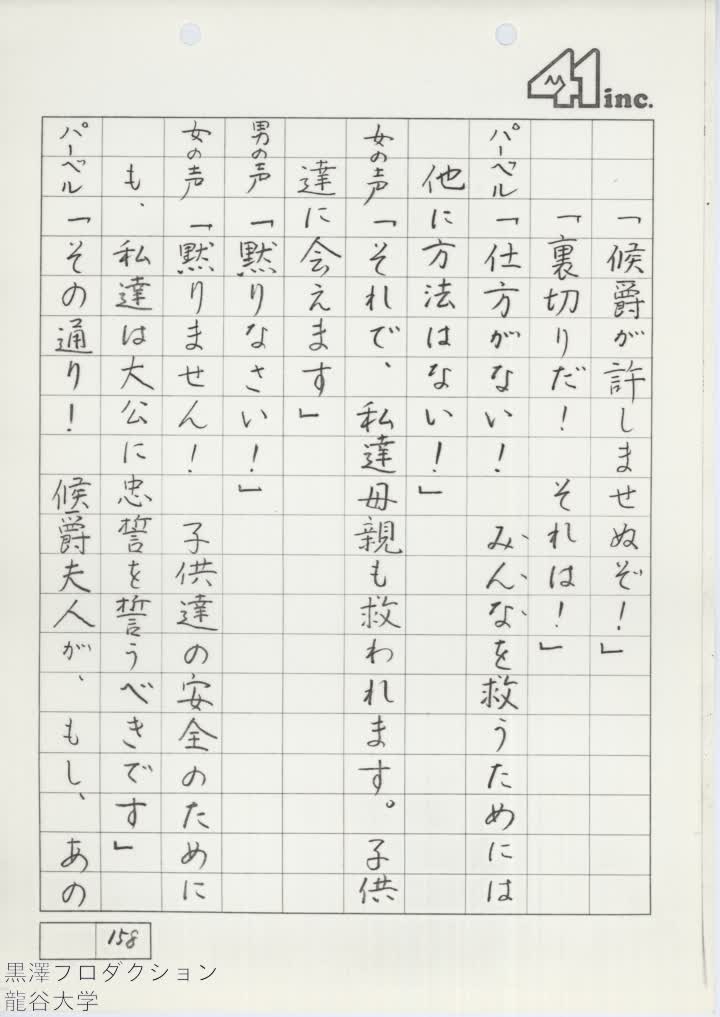 41 inc.
「候爵が許しませぬぞ！」
「裏切りだ！　それは！」
パーベル「仕方がない！　みんなを救うためには
他に方法はない！」
女の声「それで、私達母親も救われます。子供
達に会えます」
男の声「黙りなさい！」
女の声「黙りません！　子供達の安全のために
も、私達は大公に忠誓を誓うべきです」
パーベル「その通り！　候爵夫人が、もし、あの
158
黒澤プロダクション
龍谷大学